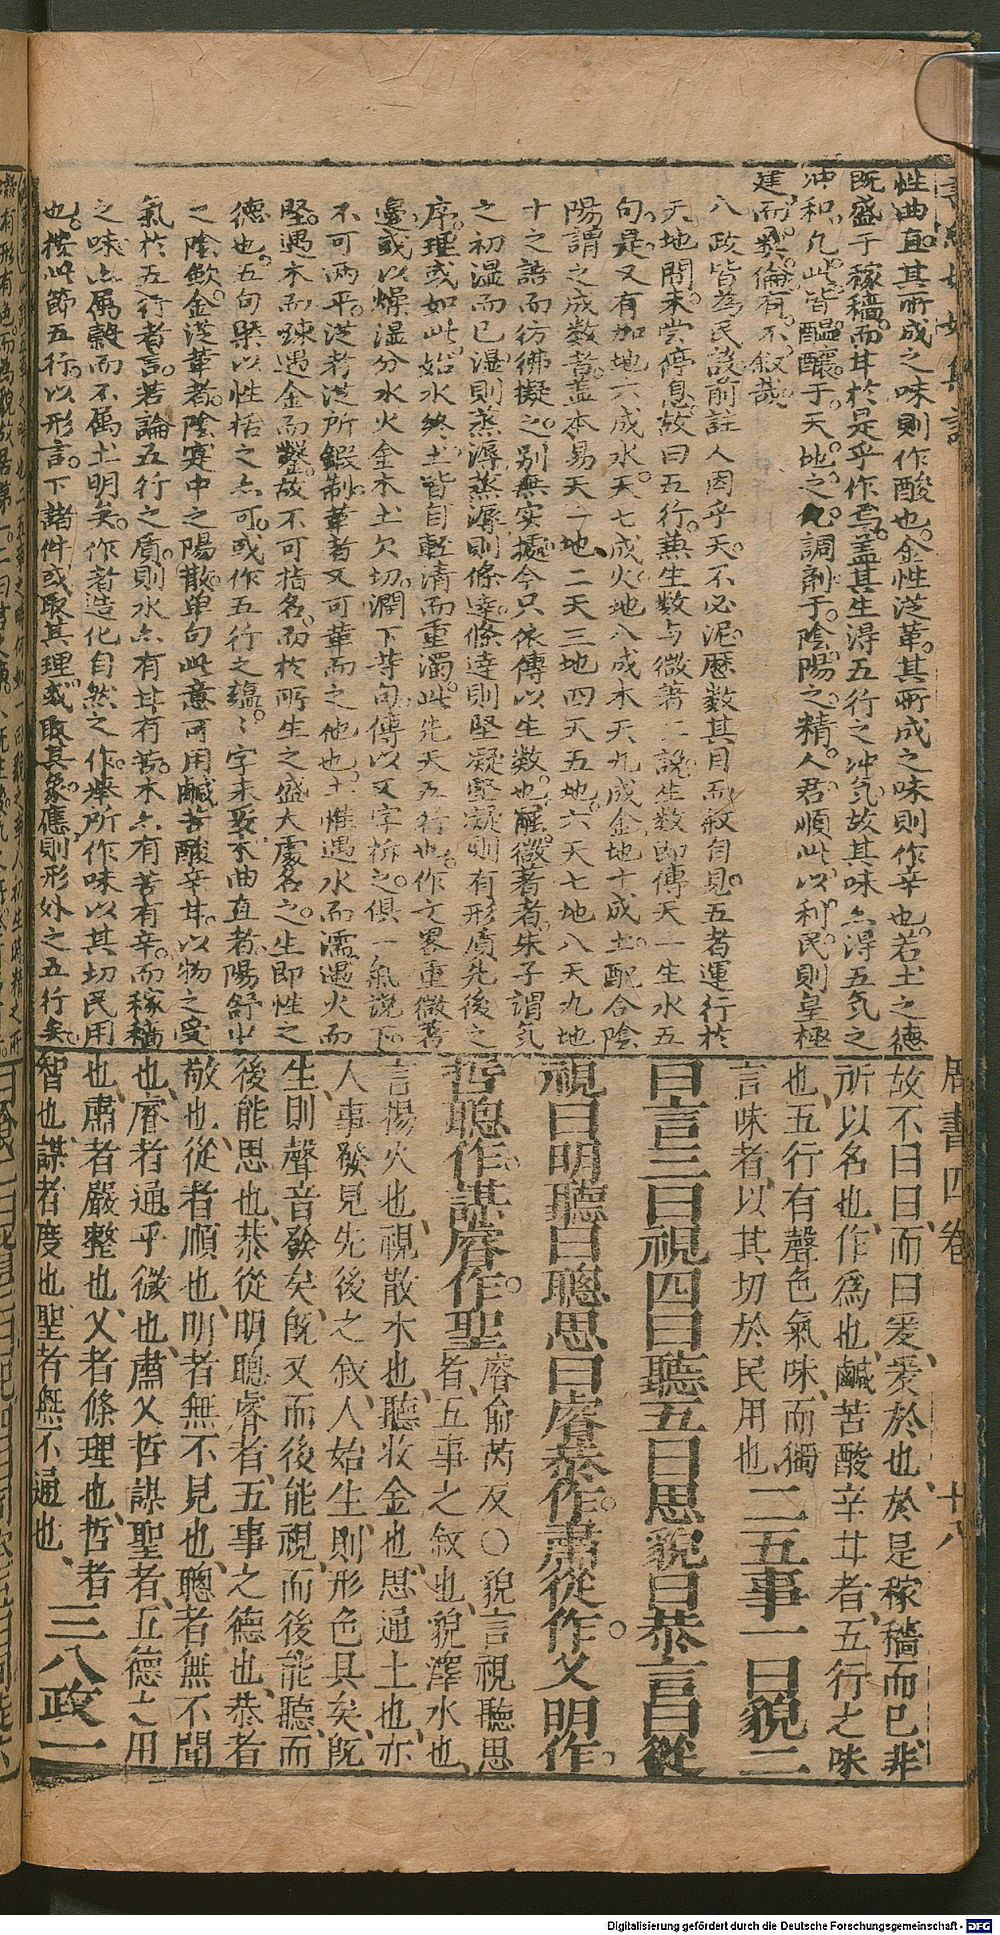 性曲直其所成之味則作酸也金性從革其所成之味則作辛也若土之德
既盛于稼穡而甘於是乎作焉盖其生得五行之冲气故其味亦得五气之
冲和凢此皆醞釀于天地之化調劑于陰陽之精人君順此以利民則皇極
建而彝倫有不敘哉
八政皆為民設前註人因乎天不必泥歷数其月而敘自見五者運行於
天地間未尝停息故曰五行兼生数与微著二說生数即傳天一生水五
句是又有加地六成水天七成火地八成木天九成金地十成土配合陰
陽謂之成数者盖本易天一地二天三地四天五地六天七地八天九地
十之語而彷彿擬之别無实據今只依傳以生数也罷微著者朱子謂气
之初湿而已湿則蒸溽蒸溽則條達條達則堅凝堅凝則有形质先後之
序理或如此始水終土皆自輕清而重濁此先天五行也作文畧重微著
邊或以燥湿分水火金木土欠切潤下等句傳以又字拆之俱一氣说下
不可兩平從者從所鍜制革者又可革而之他也土惟遇水而濡遇火而
堅遇木而疎遇金而鑿故不可指名而於所生之盛大處名之生即性之
德也五句槩以性括之亦可或作五行之蕴蕴字未妥木曲直者陽舒
之陰歛金從革者陰寔中之陽散单句此意可用鹹苦酸辛甘以物之受
氣於五行者言若論五行之质則水亦有甘有苦木亦有苦有辛而稼穡
之味亦属穀而不属土明矣作者造化自然之作凟所作味以其切民用
也按此節五行以形言下諸件或取其理或取其象應則形外之五行矣
故不曰曰而曰爰爰於也於是稼穡而已非
所以名也作爲也鹹苦酸辛甘者五行之味
也五行有聲色氣味而獨
言味者以其切於民用也 二五事一曰貌二
曰言三曰視四曰聽五曰思貌曰恭言曰從
視曰明聽曰聰思曰睿恭作肅從作乂明作
哲聰作謀睿作聖 睿俞芮反○貌言視聽思
者五事之敘也貌澤水也
言揚火也視散木也聽收金也思通土也亦
人事發見先後之敘人始生則形色具矣旣
生則聲音發矣旣又而後能視而後能聽而
後能思也恭從明聰睿者五事之德也恭者
敬也從者順也明者無不見也聰者無不聞
也睿者通乎微也肅乂哲謀聖者五德之用
也肅者嚴整也乂者條理也哲者
智也謀者度也聖者無不通也 三八政一
周書四卷 十八
Digitalisierung gefördert durch die Deutsche Forschungsgemeinschaft - DFG